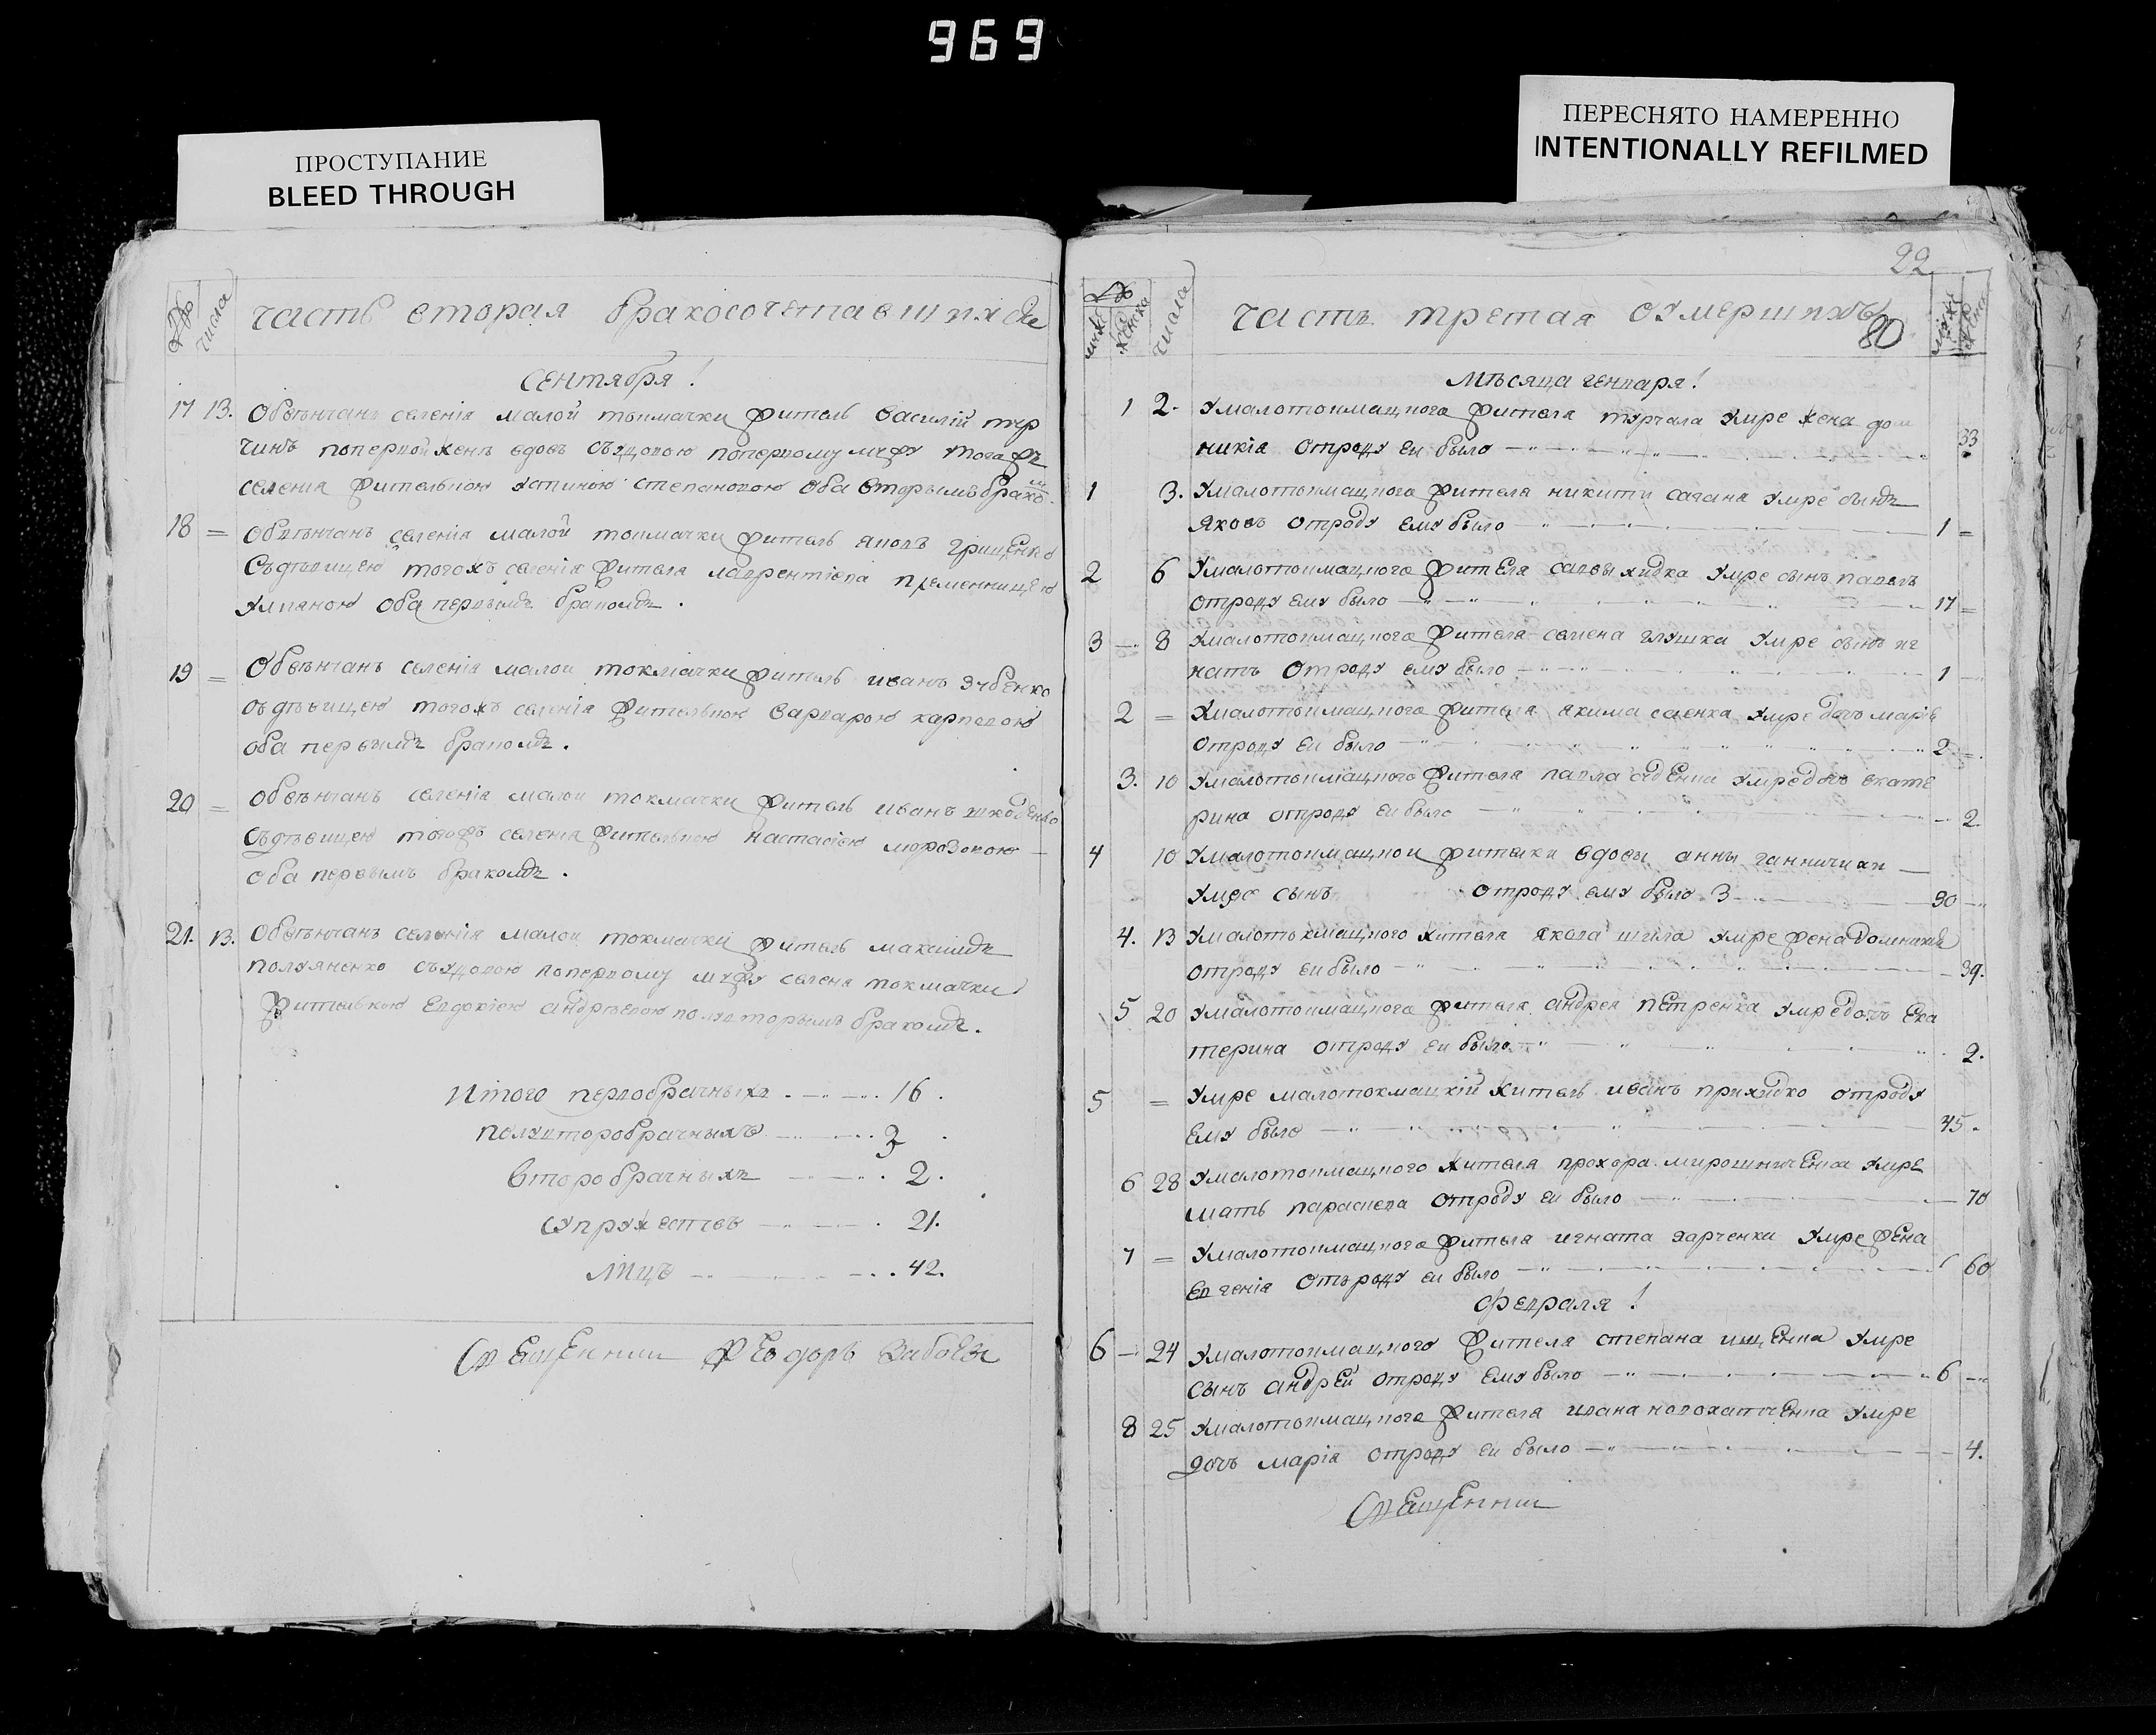 969
ПРОСТУПАНИЕ
BLEED THROUGH
ПЕРЕСНЯТО НАМЕРЕННО
INTENTIONALLY REFILMED
№ числа часть вторая бракосочетавшихся
сентября!
17 13. Обвѣнчанъ селенія малой токмачки житель василій
чинъ поперпой женѣ вдовъ съудовою поперпому мужу тогожъ
селенія жителькою устиною степановою оба вторымъ бракомъ
18 = Обвѣнчанъ селенія малой токмачки житель яковъ гриценко
съдѣвицею тогожъ селенія жителя лаврентіева племенницею
улианою оба первымъ бракомъ.
19 = Обвѣнчанъ селенія малои токмачки житель иванъ зубенко
съдѣвицею тогожъ селенія жителькою варварою карповою
оба первымъ бракомъ.
20 = Обвѣнчанъ селенія малои токмачки житель иванъ шкоденко
съдѣвицею тогожъ селенія жителькою настасіею морозовою
оба первымъ бракомъ.
21. 13. Обвѣнчанъ селенія малои токмачки житель максимъ
полуяненко съудовою поперпому мужу селеня токмачки
жителькою евдокіею андрѣевою полуторымъ бракомъ.
Итого первобрачныхъ 16.
полуторобрачныхъ 3.
второбрачныхъ 2.
супружествъ 21.
лицъ 42.
Священникъ Феодоръ
22
часть третая оумершихъ
80
мужска женска числа
Мѣсяца генваря!
1 2. Умалотокмацкого жителя турчала умре жена дом
никіа отроду еи было 33
1 3. Умалотокмацкого жителя никити сагана умре сынъ
яковъ отроду ему было 1 =
2 6 Умалотокмацкого жителя савы хидка умре сынъ павелъ
отроду ему было 17 =
3 8 Умалотокмацкого жителя семена глушка умре сынъ иг
натъ отроду ему было 1
2 = Умалотокмацкого жителя якима саенка умре дочъ марія
отроду еи было 2 =
3. 10 Умалотокмацкого жителя павла умре дочъ екате
рина отроду еи было 2.
4 10 Умалотокмацкои жителки вдовы анны
умре сынъ отроду ему было 3 30
4. 13 Умалотокмацкого жителя якова шила умре жена домникия
отроду еи было 39.
5 20 Умалотокмацкого жителя андрея петренка умре дочъ ека
терина отроду еи было 2.
5 = Умре малотокмацкій житель иванъ прихидко отроду
ему было 45.
6 28 Умалотокмацкого жителя прохора мирошниченка умре
мать параскева отроду еи было 70
7 = Умалотокмацкого жителя игната харченки умре жена
евгенія отъроду еи было 60
февраля!
6 24 Умалотокмацкого жителя степана ищенка умре
сынъ андрей отроду ему было 6
8 25 Умалотокмацкого жителя ивана новохатченка умре
дочъ марія отроду еи было 4.
Священникъ